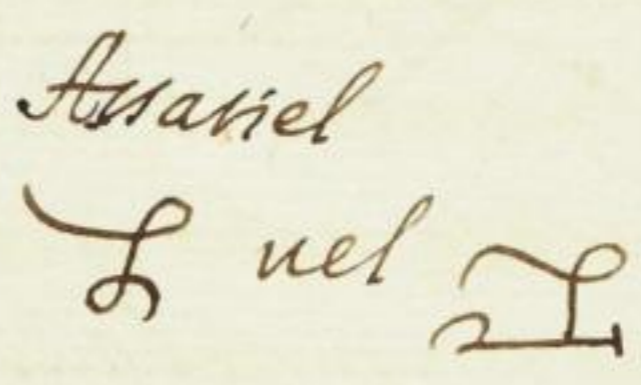 Assariel
uel